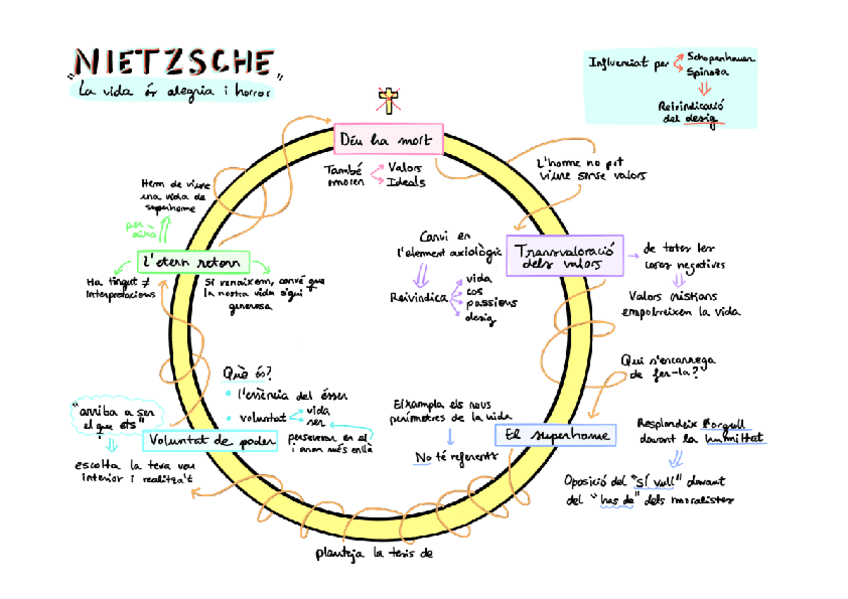 "NIETZSCHE"
La vida és alegria i horror
Influenciat per
Schopenhauer
Spinoza
Reivindicació
del desig
Déu ha mort
També
moren
Valors
Ideals
L'home no pot
viure sense valors
Transvaloració
dels valors
de totes les
coses negatives
Valors cristians
empobreixen la vida
Canvi en
l'element axiològic
Reivindica
vida
cos
passions
desig
Qui s'encarrega
de fer-la?
El superhome
Respondeix l'orgull
davant la humilitat
Oposició del "sí vull" davant
del "has de" dels moralistes
Eixampla els nous
perímetres de la vida
No té referents
planteja la tesis de
Voluntat de poder
Què és?
• l'essència del ésser
• voluntat
vida
ser
perseverar en el
i anar més enllà
"arriba a ser
el que ets"
escolta la teva veu
interior i realitza't
L'etern retorn
Ha tingut ≠
interpretacions
Si renaixem, convé que
la nostra vida sigui
generosa
per
això
Hem de viure
una vida de
superhome